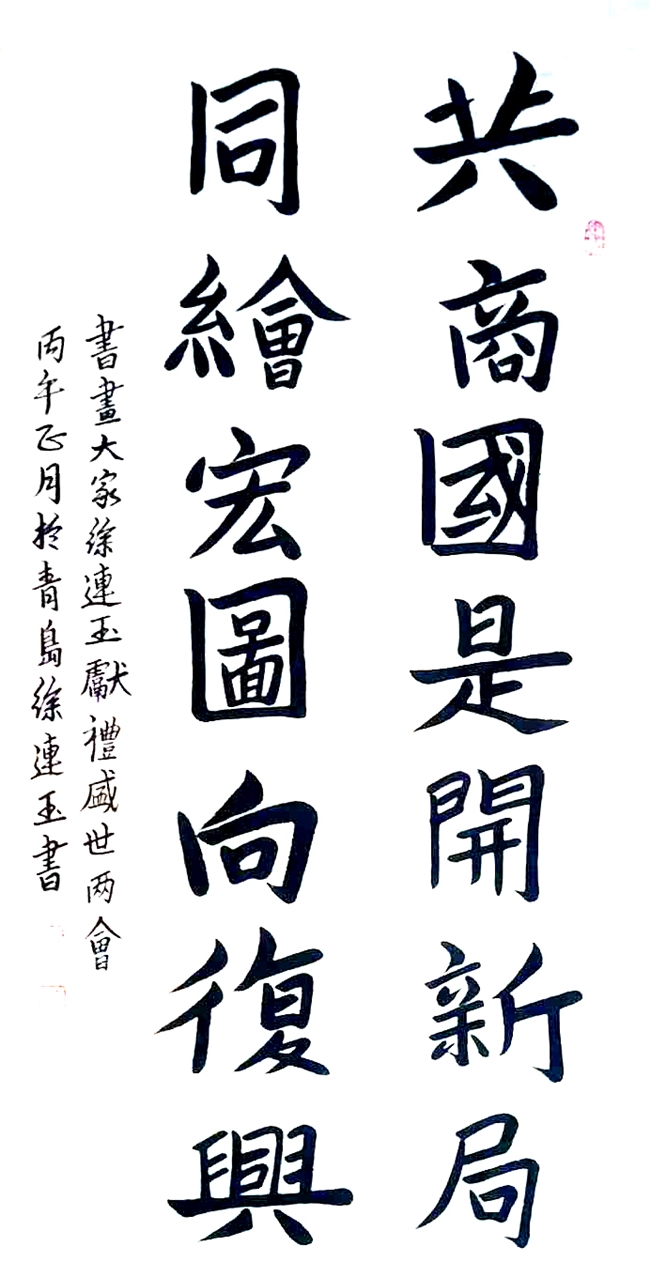 共商國是開新局
同繪宏圖向復興
書畫大家徐連玉獻禮盛世两會
丙午正月於青島徐連玉書